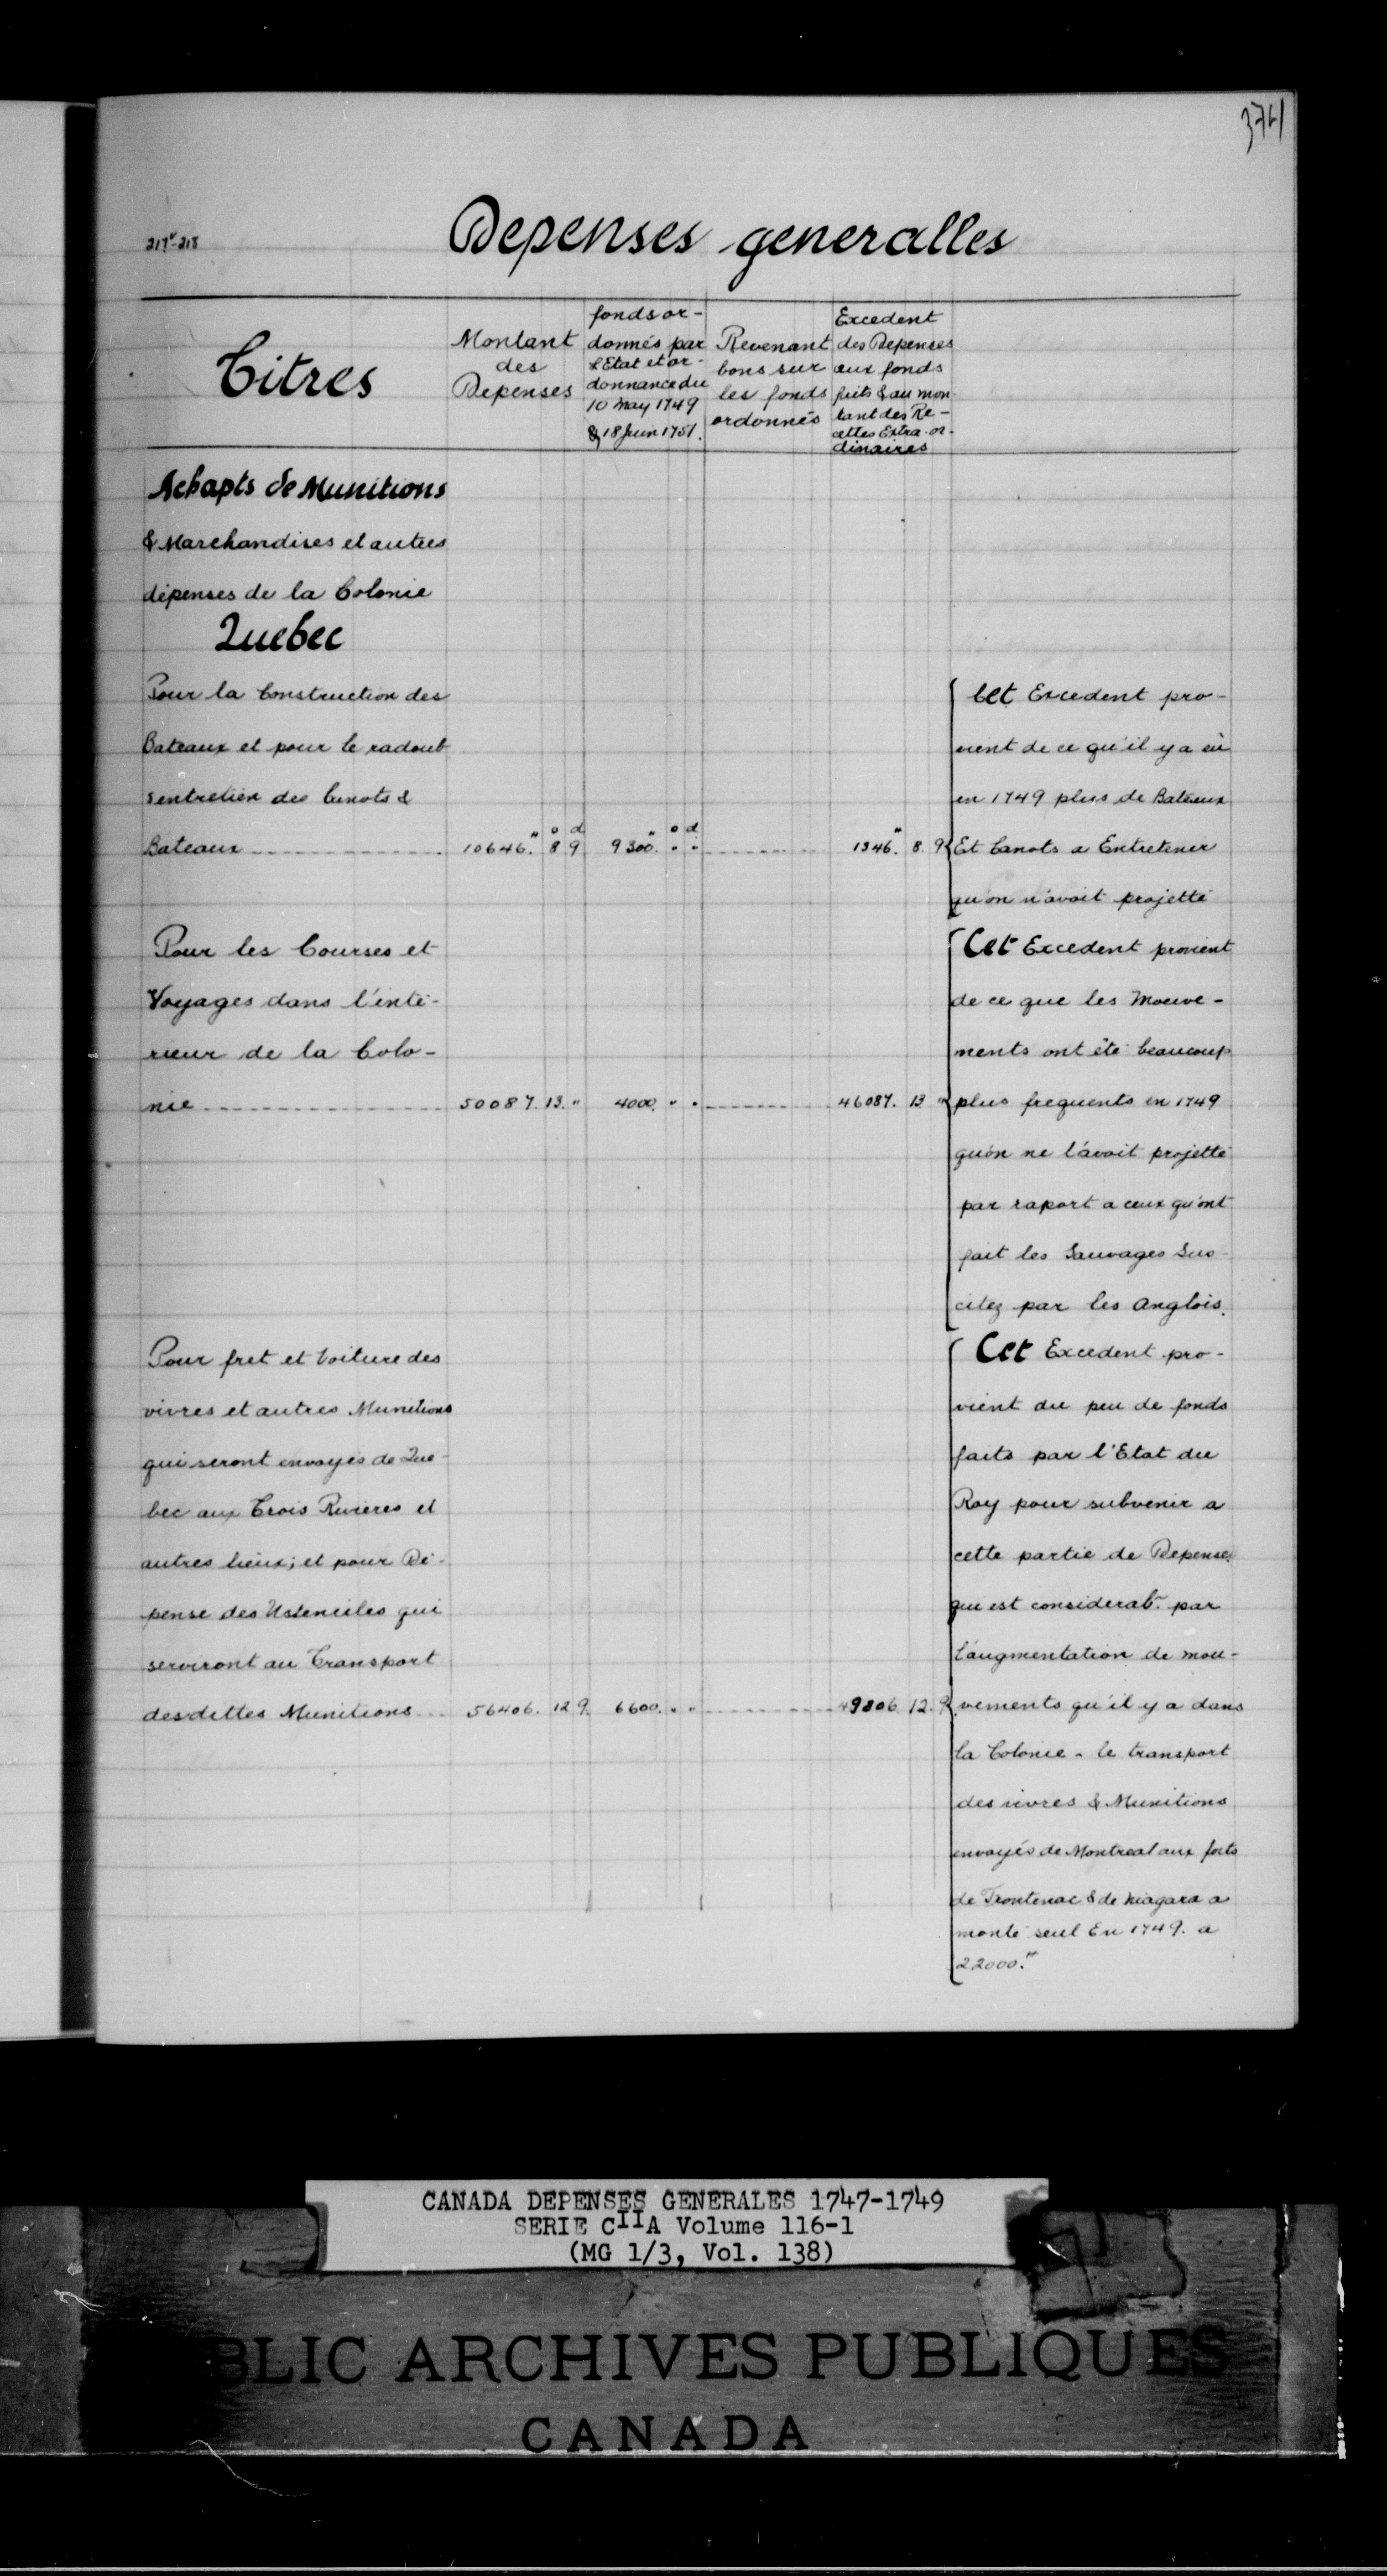 374
217v-218
Depenses generalles
Titres
Montant
des
Depenses
fonds or-
donnés par
l'Etat et or-
donnance du
10 May 1749
& 18 Juin 1751.
Revenant
bons sur
les fonds
ordonnés
Excedent
des Depenses
aux fonds
faits & au mon-
tant des Re-
cettes Extra-or-
dinaires
Achapts de Munitions
& Marchandises et autres
dépenses de la Colonie
Quebec
Pour la Construction des
Bateaux et pour le radoub
& entretien des Canots &
Bateaux 10646. 8 9 9300. " " 1346. 8. 9
Cet Excedent pro-
vient de ce qu'il y a eû
en 1749 plus de Bateaux
Et Canots a Entretenir
qu'on n'avoit projetté
Pour les Courses et
Voyages dans l'inté-
rieur de la Colo-
nie 50087. 13. " 4000. " " 46087. 13 "
Cet Excedent provient
de ce que les Mouve-
ments ont été beaucoup
plus frequents en 1749
qu'on ne l'avoit projetté
par raport a ceux qu'ont
fait les Sauvages Sus-
citez par les Anglois.
Pour fret et Voiture des
vivres et autres Munitions
qui seront envoyés de Que-
bec aux Trois Rivieres et
autres lieux; et pour Dé-
pense des Ustenciles qui
serviront au Transport
desdittes Munitions 56406. 12 9. 6600. " " 49806. 12. 9
Cet Excedent pro-
vient du peu de fonds
faits par l'Etat du
Roy pour subvenir a
cette partie de Depense
qui est considerab. par
l'augmentation de mou-
vements qu'il y a dans
la Colonie - le transport
des vivres & Munitions
envoyés de Montreal aux forts
de Frontenac & de Niagara a
monté seul En 1749. a
22000.tt
CANADA DEPENSES GENERALES 1747-1749
SERIE CIIA Volume 116-1
(MG 1/3, Vol. 138)
BLIC ARCHIVES PUBLIQUES
CANADA